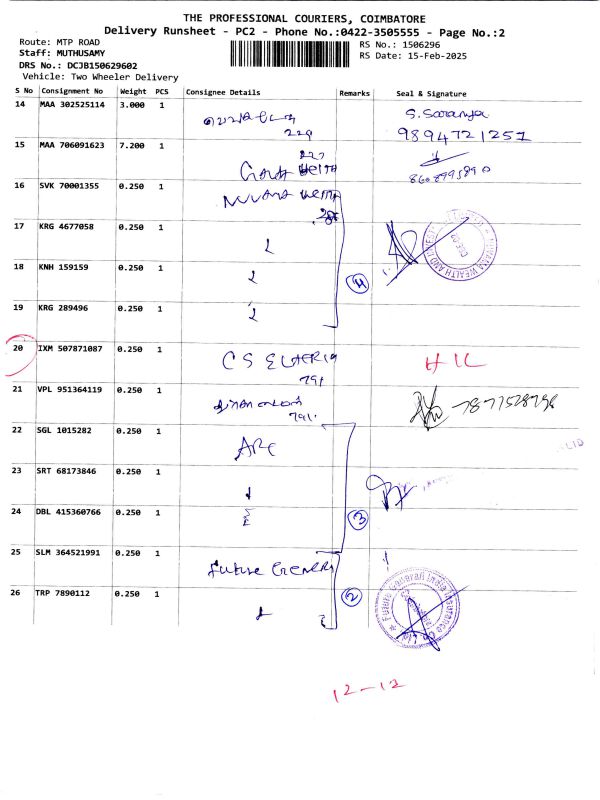 THE PROFESSIONAL COURIERS, COIMBATORE
Delivery Runsheet - PC2 - Phone No.:0422-3505555 - Page No.:2
Route: MTP ROAD
RS No.: 1506296
Staff: MUTHUSAMY
RS Date: 15-Feb-2025
DRS No.: DCJB150629602
Vehicle: Two Wheeler Delivery
S No Consignment No Weight PCS Consignee Details Remarks Seal & Signature
14 MAA 302525114 3.000 1 S. Saranya
229 9894721251
15 MAA 706091623 7.200 1 227
16 SVK 70001355 0.250 1
17 KRG 4677058 0.250 1
18 KNH 159159 0.250 1 4
19 KRG 289496 0.250 1
20 IXM 507871087 0.250 1 C S HIL
791
21 VPL 951364119 0.250 1 7877528798
791
22 SGL 1015282 0.250 1
23 SRT 68173846 0.250 1
24 DBL 415360766 0.250 1 3
25 SLM 364521991 0.250 1 Future Generali
26 TRP 7890112 0.250 1 2 Future Generali India Insurance
12-12